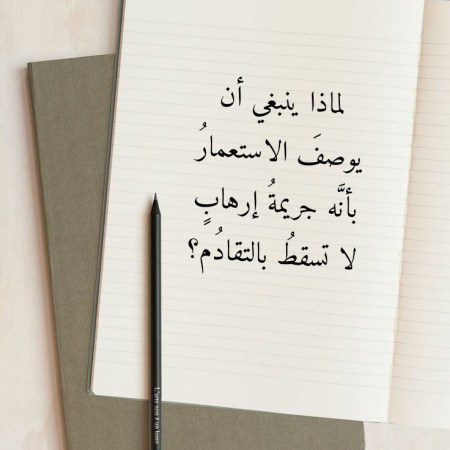 لماذا ينبغي أن
يوصفَ الاستعمارُ
بأنَّه جريمةُ إرهابٍ
لا تسقطُ بالتقادُم؟